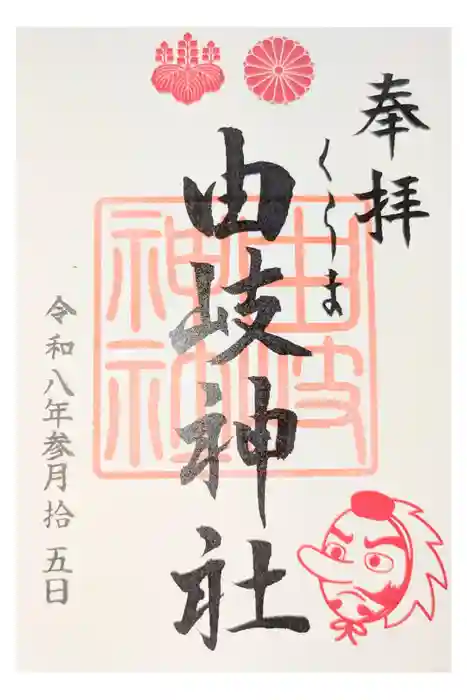 奉拝
くらま
由岐神社
由岐神社
令和八年参月拾五日